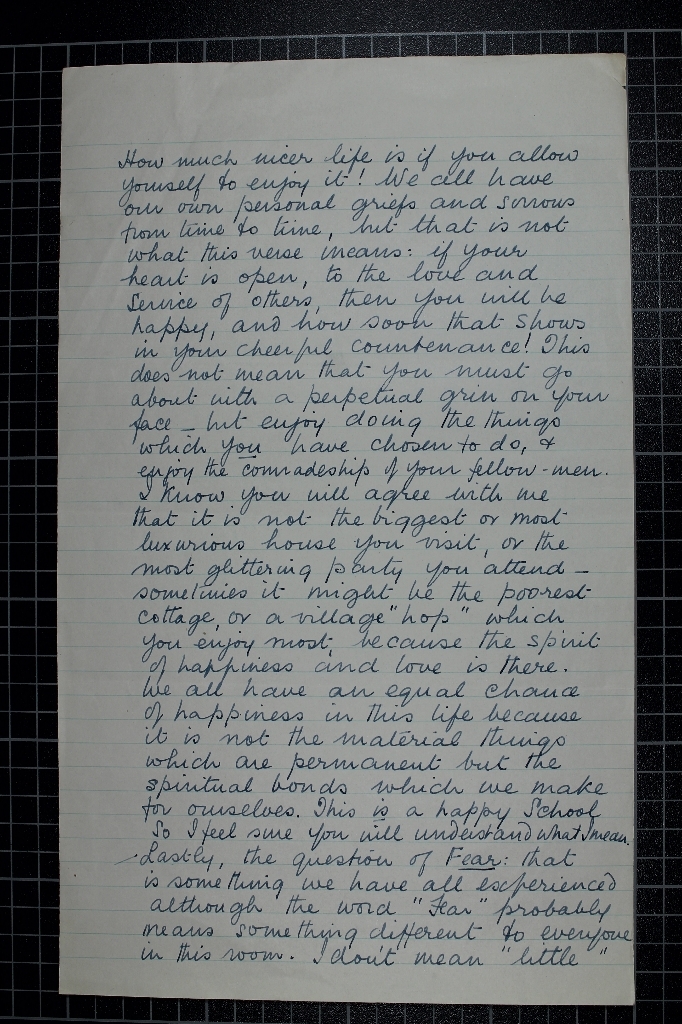 How much nicer life is if you allow
yourself to enjoy it! We all have
our own personal griefs and sorrows
from time to time, but that is not
what this verse means: if your
heart is open, to the love and
service of others, then you will be
happy, and how soon that shows
in your cheerful countenance! This
does not mean that you must go
about with a perpetual grin on your
face – but enjoy doing the things
which you have chosen to do, &
enjoy the comradeship of your fellow-men.
I know you will agree with me
that it is not the biggest or most
luxurious house you visit, or the
most glittering party you attend –
sometimes it might be the poorest
cottage, or a village "hop" which
you enjoy most, because the spirit
of happiness and love is there.
We all have an equal chance
of happiness in this life because
it is not the material things
which are permanent but the
spiritual bonds which we make
for ourselves. This is a happy School
So I feel sure you will understand what I mean.
Lastly, the question of Fear: that
is something we have all experienced
although the word "Fear" probably
means something different to everyone
in this room. I don't mean "little"